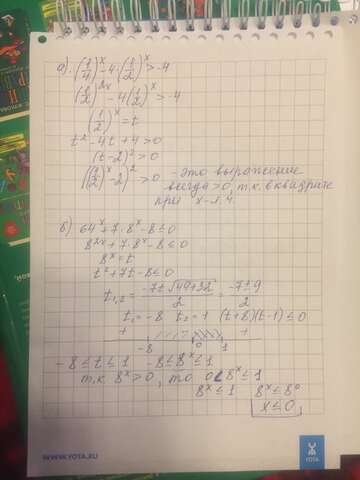 а). (1/4)^x - 4·(1/2)^x > -4
(1/2)^2x - 4(1/2)^x > -4
(1/2)^x = t
t² - 4t + 4 > 0
(t - 2)² > 0
((1/2)^x - 2)² > 0 - это выражение
всегда > 0, т.к. в квадрате
при х-л.ч.
б) 64^x + 7·8^x - 8 ≤ 0
8^2x + 7·8^x - 8 ≤ 0
8^x = t
t² + 7t - 8 ≤ 0
t1,2 = (-7 ± √(49+32))/2 = (-7 ± 9)/2
t1 = -8 t2 = 1 (t+8)(t-1) ≤ 0
+ +
-8 0 1
-8 ≤ t ≤ 1 -8 ≤ 8^x ≤ 1
т.к. 8^x > 0, то 0 < 8^x ≤ 1
8^x ≤ 1 8^x ≤ 8^0
x ≤ 0
WWW.YOTA.RU
YOTA